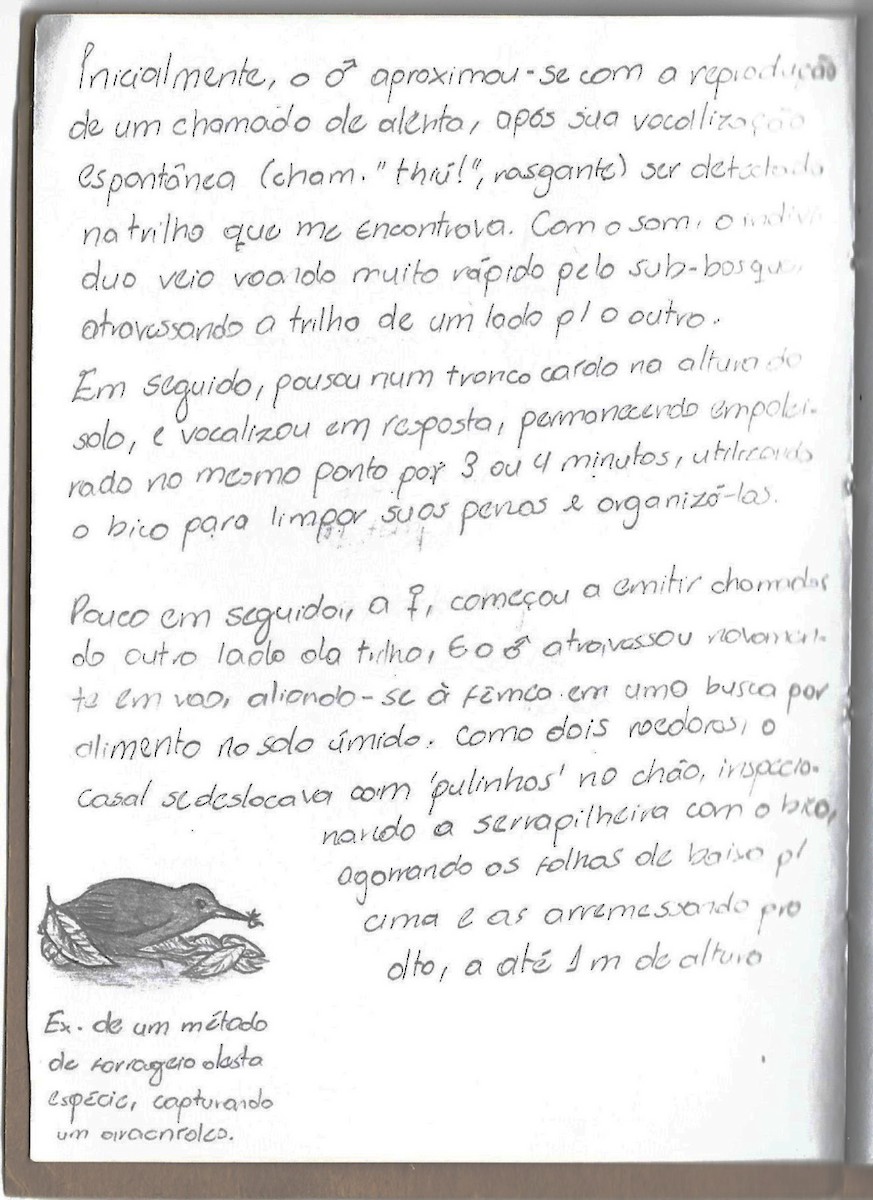 Inicialmente, o ♂ aproximou-se com a reprodução
de um chamado de alerta, após sua vocalização
espontânea (cham. "thrí!", rasgante) ser detectada
na trilha que me encontrava. Com o som, o indiví
duo veio voando muito rápido pelo sub-bosque,
atravessando a trilha de um lado p/ o outro.
Em seguida, pousou num tronco caído na altura do
solo, e vocalizou em resposta, permanecendo empolei-
rado no mesmo ponto por 3 ou 4 minutos, utilizando
o bico para limpar suas penas e organizá-las.
Pouco em seguida, a ♀, começou a emitir chamadas
do outro lado da trilha, e o ♂ atravessou novamen-
te em voo, aliando-se à fêmea em uma busca por
alimento no solo úmido. Como dois roedores, o
casal se deslocava com 'pulinhos' no chão, inspecio-
nando a serrapilheira com o bico,
agarrando as folhas de baixo p/
cima e as arremessando pro
alto, a até 1 m de altura
Ex. de um método
de forrageio desta
espécie, capturando
um aracnídeo.